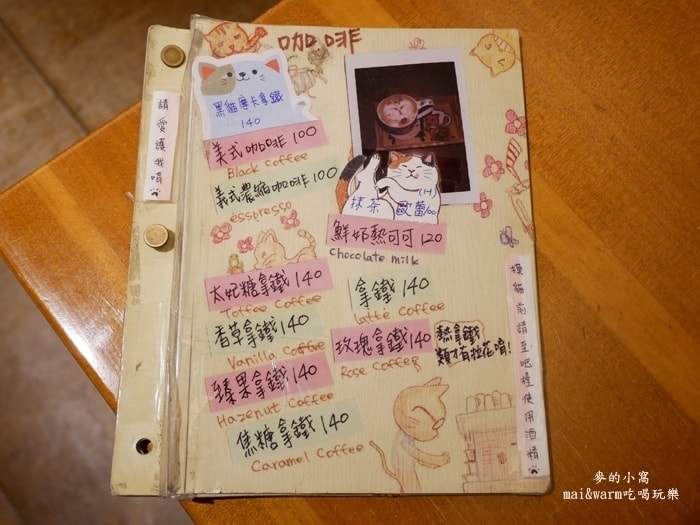 咖啡
黑貓摩卡拿鐵
140
美式咖啡 100
Black coffee
義式濃縮咖啡 100
esspresso
太妃糖拿鐵 140
Toffee Coffee
香草拿鐵 140
Vanilla Coffee
榛果拿鐵 140
Hazenut Coffee
焦糖拿鐵 140
Caramel Coffee
抹茶 歐蕾 (H) 100
鮮奶熱可可 120
Chocolate milk
拿鐵 140
Latté Coffee
玫瑰拿鐵 140
Rose Coffee
熱拿鐵
類才有拉花唷!
請愛護我唷
摸貓前請至吧檯使用酒精
麥的小窩
mai&warm吃喝玩樂